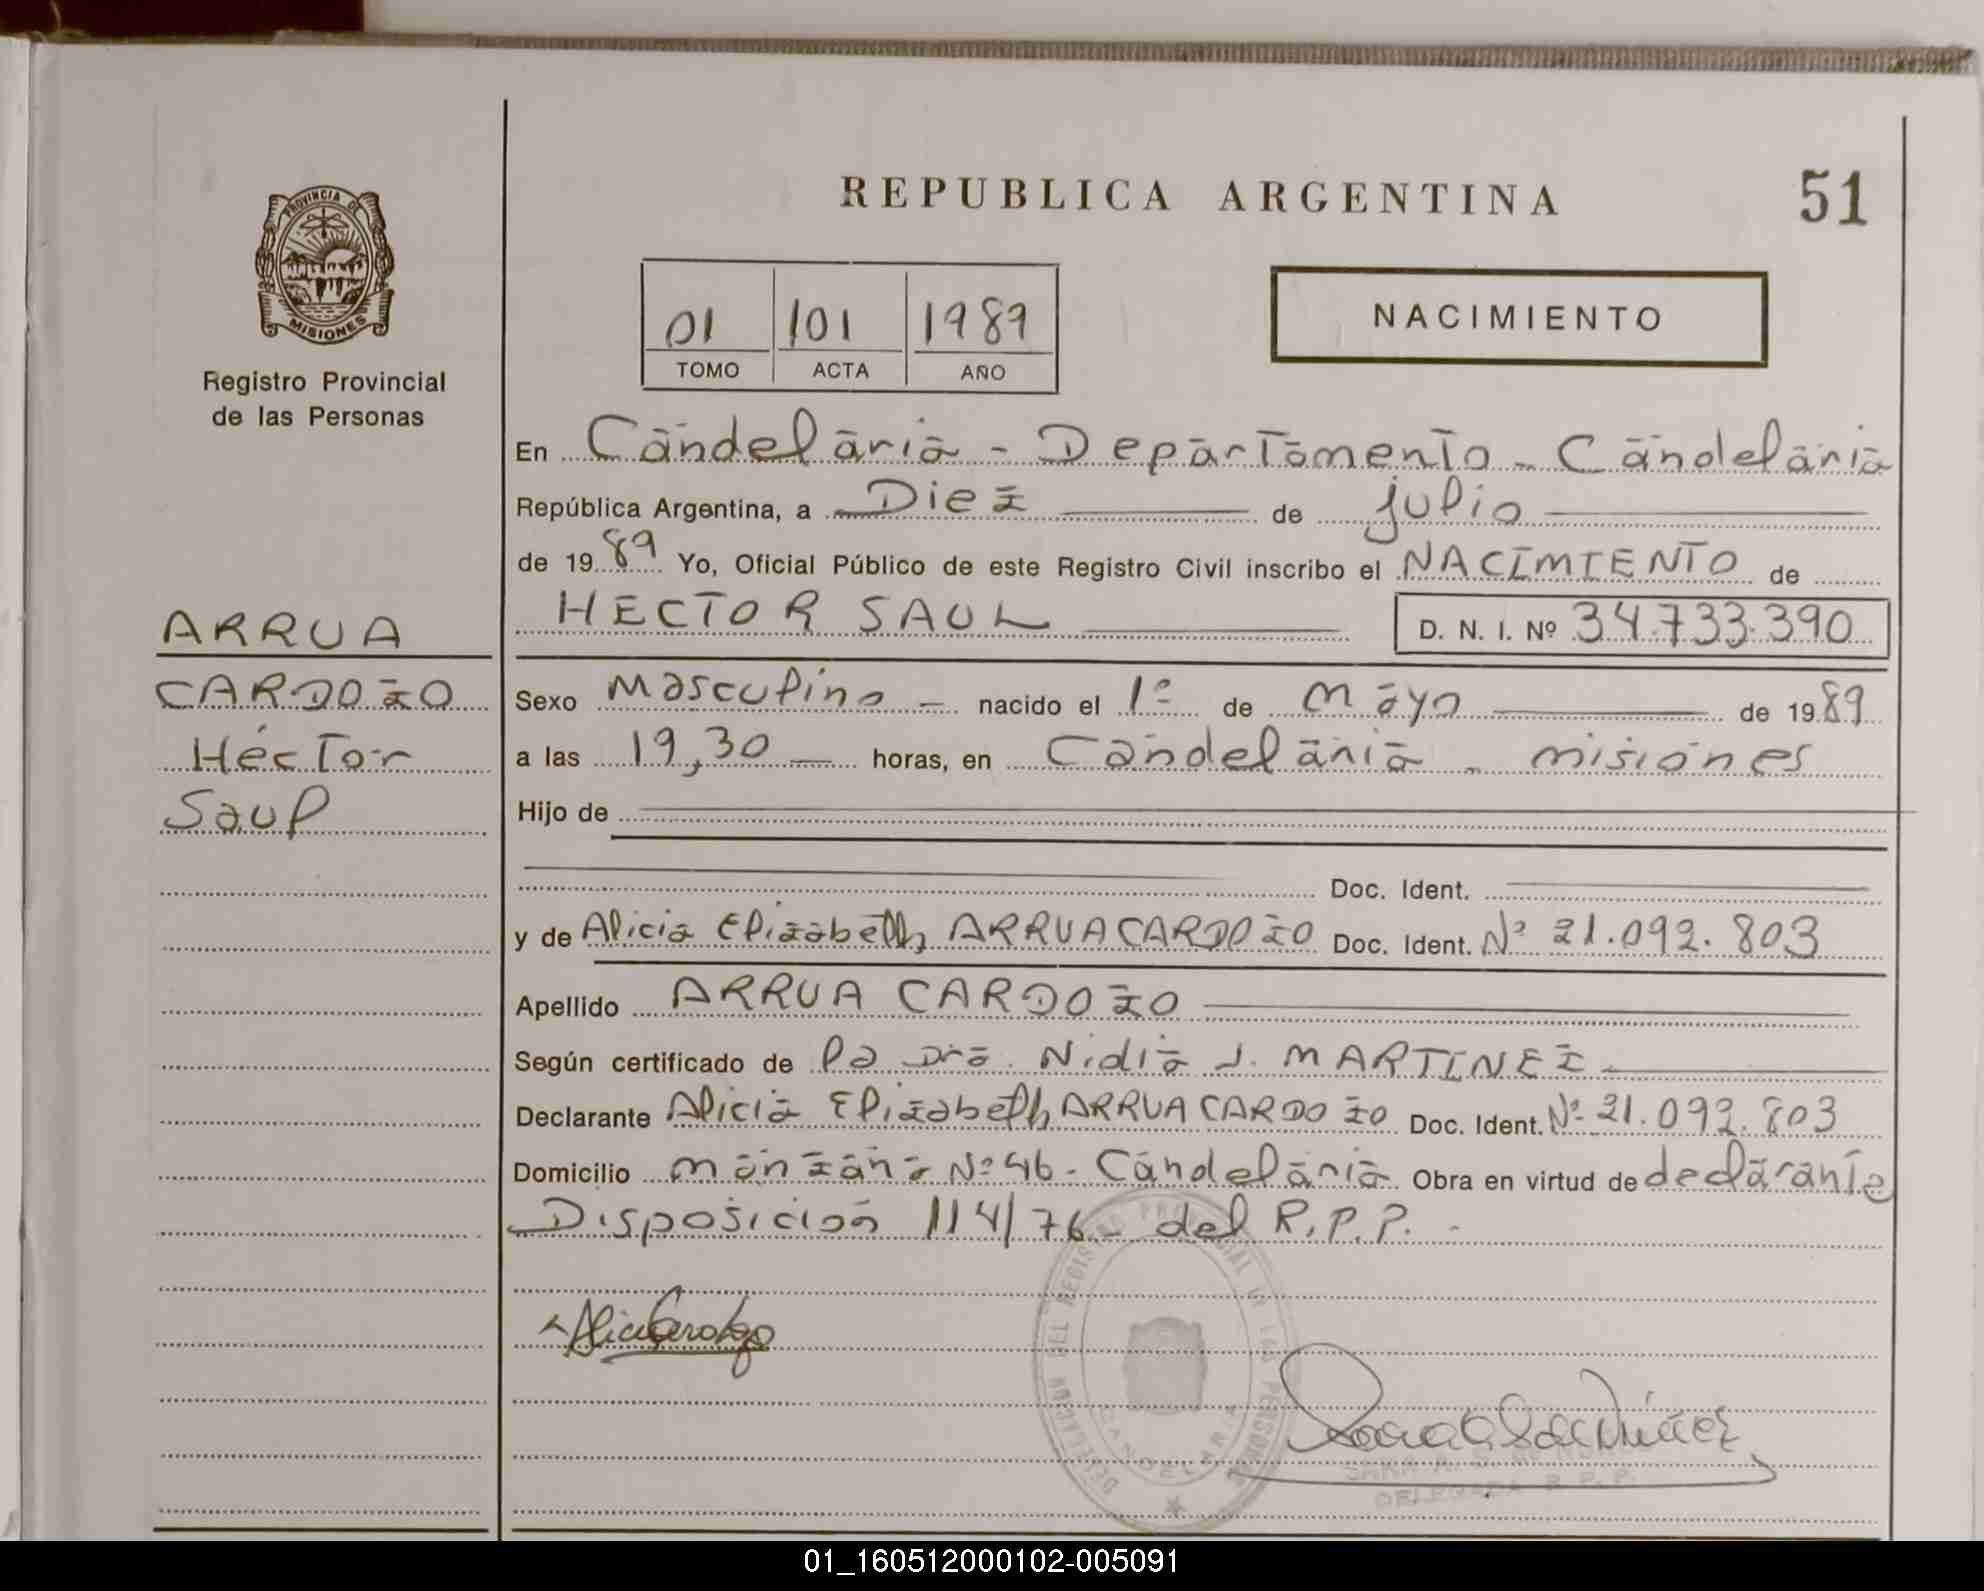 PROVINCIA DE
MISIONES
Registro Provincial
de las Personas
ARRUA
CARDOZO
Héctor
Saul
REPUBLICA ARGENTINA
51
01 101 1989
TOMO ACTA AÑO
NACIMIENTO
En Candelaria - Departamento - Candelaria
República Argentina, a Diez de julio
de 1989 Yo, Oficial Público de este Registro Civil inscribo el NACIMIENTO de
HECTOR SAUL D. N. I. Nº 34.733.390
Sexo Masculino - nacido el 1º de mayo de 1989
a las 19,30 horas, en Candelaria - misiones
Hijo de
Doc. Ident.
y de Alicia Elizabeth ARRUA CARDOZO Doc. Ident. Nº 21.092.803
Apellido ARRUA CARDOZO
Según certificado de la Dra. Nidia J. MARTINEZ
Declarante Alicia Elizabeth ARRUA CARDOZO Doc. Ident. Nº 21.092.803
Domicilio manzana Nº 46 - Candelaria Obra en virtud de declarante
Disposición 114/76 - del R.P.P. -
DELEGACION DEL REGISTRO PROVINCIAL DE LAS PERSONAS
CANDELARIA
DELEGADA R. P. P.
01_160512000102-005091